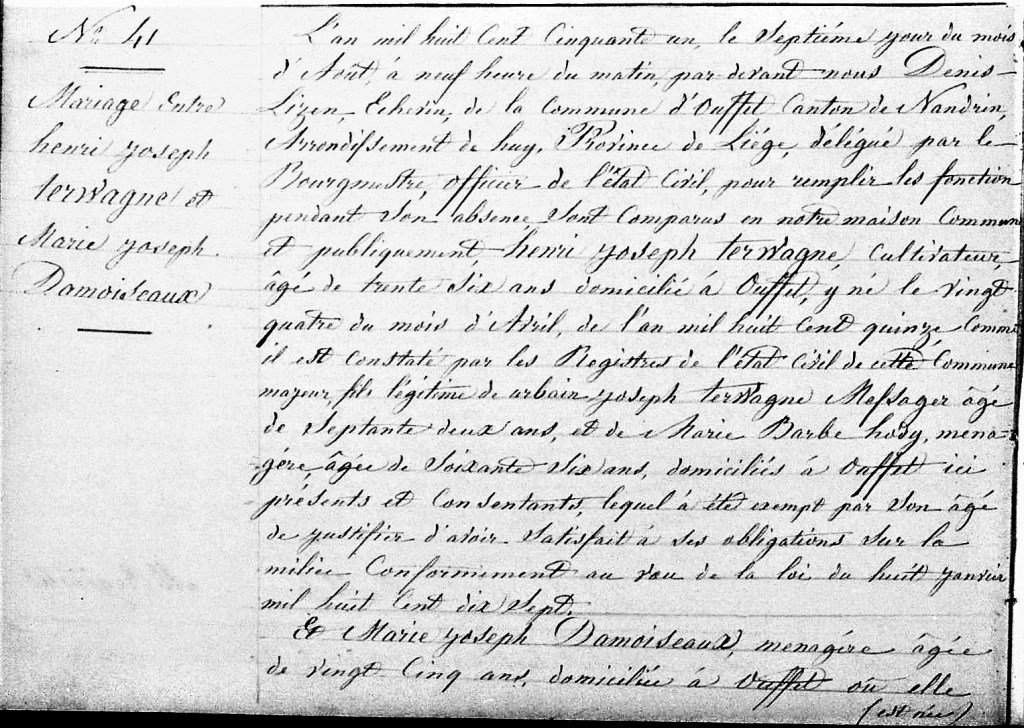 N° 41
Mariage Entre
henri Joseph
terwagne et
Marie Joseph
Damoiseaux
L'an mil huit Cent Cinquante un, le Septième jour du mois
d'Août, à neuf heure du matin, par-devant nous Denis
Lizen, Echevin, de la Commune d'Ouffet Canton de Nandrin,
Arrondissement de huy, Province de Liége, délégué par le
Bourgmestre, officier de l'état Civil, pour remplir les fonction
pendant Son absence, Sont Comparus en notre maison Commune
et publiquement henri Joseph terwagne, Cultivateur,
âgé de trente Six ans domicilié à Ouffet, y né le vingt
quatre du mois d'Avril, de l'an mil huit Cent quinze Comme
il est Constaté par les Registres de l'état Civil de cette Commune
majeur, fils légitime de urbain Joseph terwagne Messager âgé
de Septante deux ans, et de Marie Barbe hody, mena-
gère âgée de Soixante Six ans, domiciliés à Ouffet ici
présents et Consentants, lequel à été exempt par Son âgé
de justifier d'avoir Satisfait à Ses obligations Sur la
milice Conformément au vœu de la loi du huit Janvier
mil huit Cent dix Sept.
Et Marie Joseph Damoiseaux, menagère âgée
de vingt Cinq ans, domiciliée à Ouffet où elle
(est née)